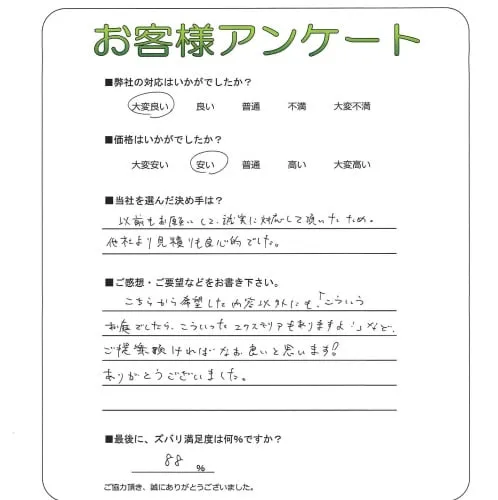 お客様アンケート
■弊社の対応はいかがでしたか？
大変良い 良い 普通 不満 大変不満
■価格はいかがでしたか？
大変安い 安い 普通 高い 大変高い
■当社を選んだ決め手は？
以前もお願いして、誠実に対応して頂いたため。
他社より見積りも良心的でした。
■ご感想・ご要望などをお書き下さい。
こちらから希望した内容以外にも、「こういう
お庭でしたら、こういったエクステリアもありますよ！」など、
ご提案頂ければなお良いと思います！
ありがとうございました。
■最後に、ズバリ満足度は何％ですか？
88 ％
ご協力頂き、誠にありがとうございました。